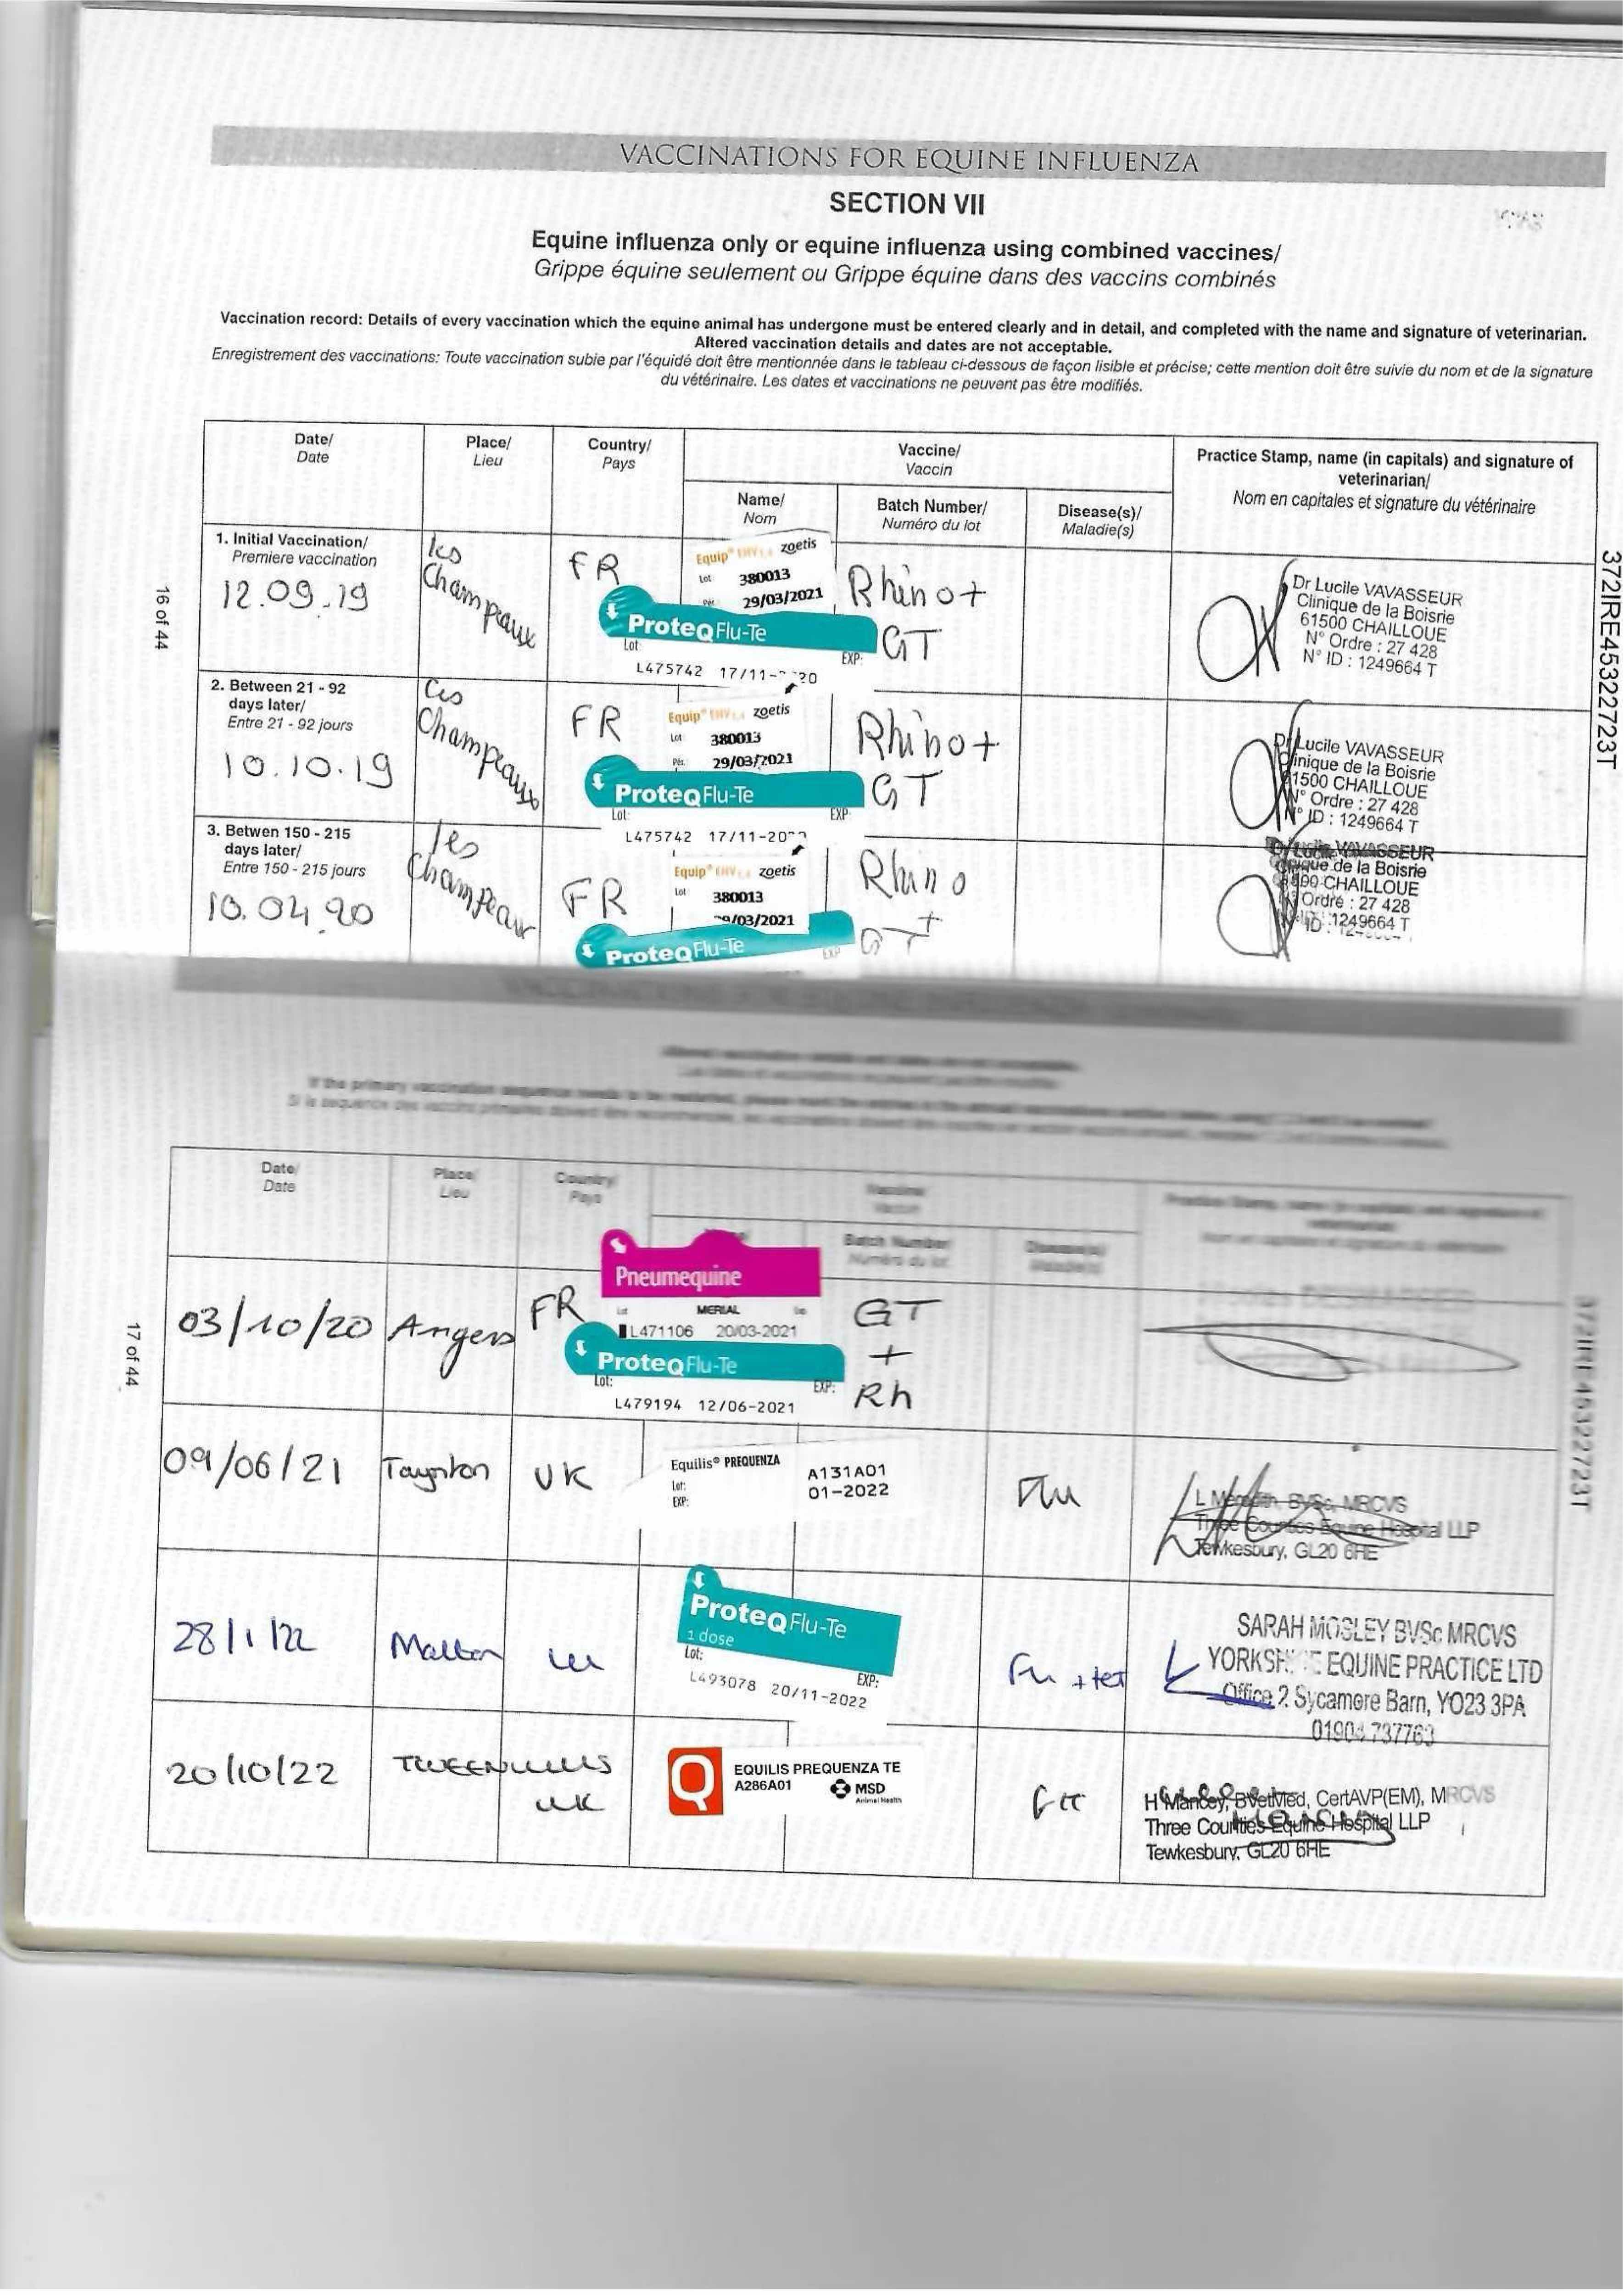 VACCINATIONS FOR EQUINE INFLUENZA
SECTION VII
Equine influenza only or equine influenza using combined vaccines/
Grippe équine seulement ou Grippe équine dans des vaccins combinés
Vaccination record: Details of every vaccination which the equine animal has undergone must be entered clearly and in detail, and completed with the name and signature of veterinarian.
Altered vaccination details and dates are not acceptable.
Enregistrement des vaccinations: Toute vaccination subie par l'équidé doit être mentionnée dans le tableau ci-dessous de façon lisible et précise; cette mention doit être suivie du nom et de la signature
du vétérinaire. Les dates et vaccinations ne peuvent pas être modifiés.
Date/
Date
Place/
Lieu
Country/
Pays
Vaccine/
Vaccin
Practice Stamp, name (in capitals) and signature of
veterinarian/
Nom en capitales et signature du vétérinaire
Name/
Nom
Batch Number/
Numéro du lot
Disease(s)/
Maladie(s)
1. Initial Vaccination/
Premiere vaccination
12.09.19
les
Champeaux
FR
Equip® EHV1,4 zoetis
Lot 380013
Pér. 29/03/2021
ProteqFlu-Te
Lot: EXP:
L475742 17/11-
20
Rhino+
GT
Dr Lucile VAVASSEUR
Clinique de la Boisrie
61500 CHAILLOUE
N° Ordre : 27 428
N° ID : 1249664 T
2. Between 21 - 92
days later/
Entre 21 - 92 jours
10.10.19
Les
Champeaux
FR
Equip® EHV1,4 zoetis
Lot 380013
Pér. 29/03/2021
ProteqFlu-Te
Lot: EXP:
L475742 17/11-20
Rhino+
GT
Dr Lucile VAVASSEUR
Clinique de la Boisrie
61500 CHAILLOUE
N° Ordre : 27 428
N° ID : 1249664 T
3. Betwen 150 - 215
days later/
Entre 150 - 215 jours
10.04.20
les
Champeaux
FR
Equip® EHV1,4 zoetis
Lot 380013
/03/2021
ProteqFlu-Te
EXP
Rhino
+
GT
Dr Lucile VAVASSEUR
Clinique de la Boisrie
61500 CHAILLOUE
N° Ordre : 27 428
N° ID : 1249664 T
16 of 44
372IRE45322723T
If the primary vaccination sequence needs to be restarted, please mark the entries in the annual vaccinations
Date/
Date
Place/
Lieu
Country/
Pays
Vaccine
Vaccin
Batch Number/
Numéro du lot
Disease(s)/
Maladie(s)
03/10/20
Angers
FR
Pneumequine
MERIAL
L471106 20/03-2021
ProteqFlu-Te
Lot: EXP:
L479194 12/06-2021
GT
+
Rh
09/06/21
Taynton
UK
Equilis® PREQUENZA
Lot: A131A01
EXP: 01-2022
Flu
L Meredith BVSc, MRCVS
Three Counties Equine Hospital LLP
Tewkesbury, GL20 6HE
28/1/22
Malton
UK
ProteqFlu-Te
1 dose
Lot: EXP:
L493078 20/11-2022
Flu + tet
SARAH MOSLEY BVSc MRCVS
YORKSHIRE EQUINE PRACTICE LTD
Office 2 Sycamore Barn, YO23 3PA
01904 737763
20/10/22
UK
Q
EQUILIS PREQUENZA TE
A286A01
MSD
Animal Health
H Mancey, BVetMed, CertAVP(EM), MRCVS
Three Counties Equine Hospital LLP
Tewkesbury, GL20 6HE
17 of 44
372IRE45322723T